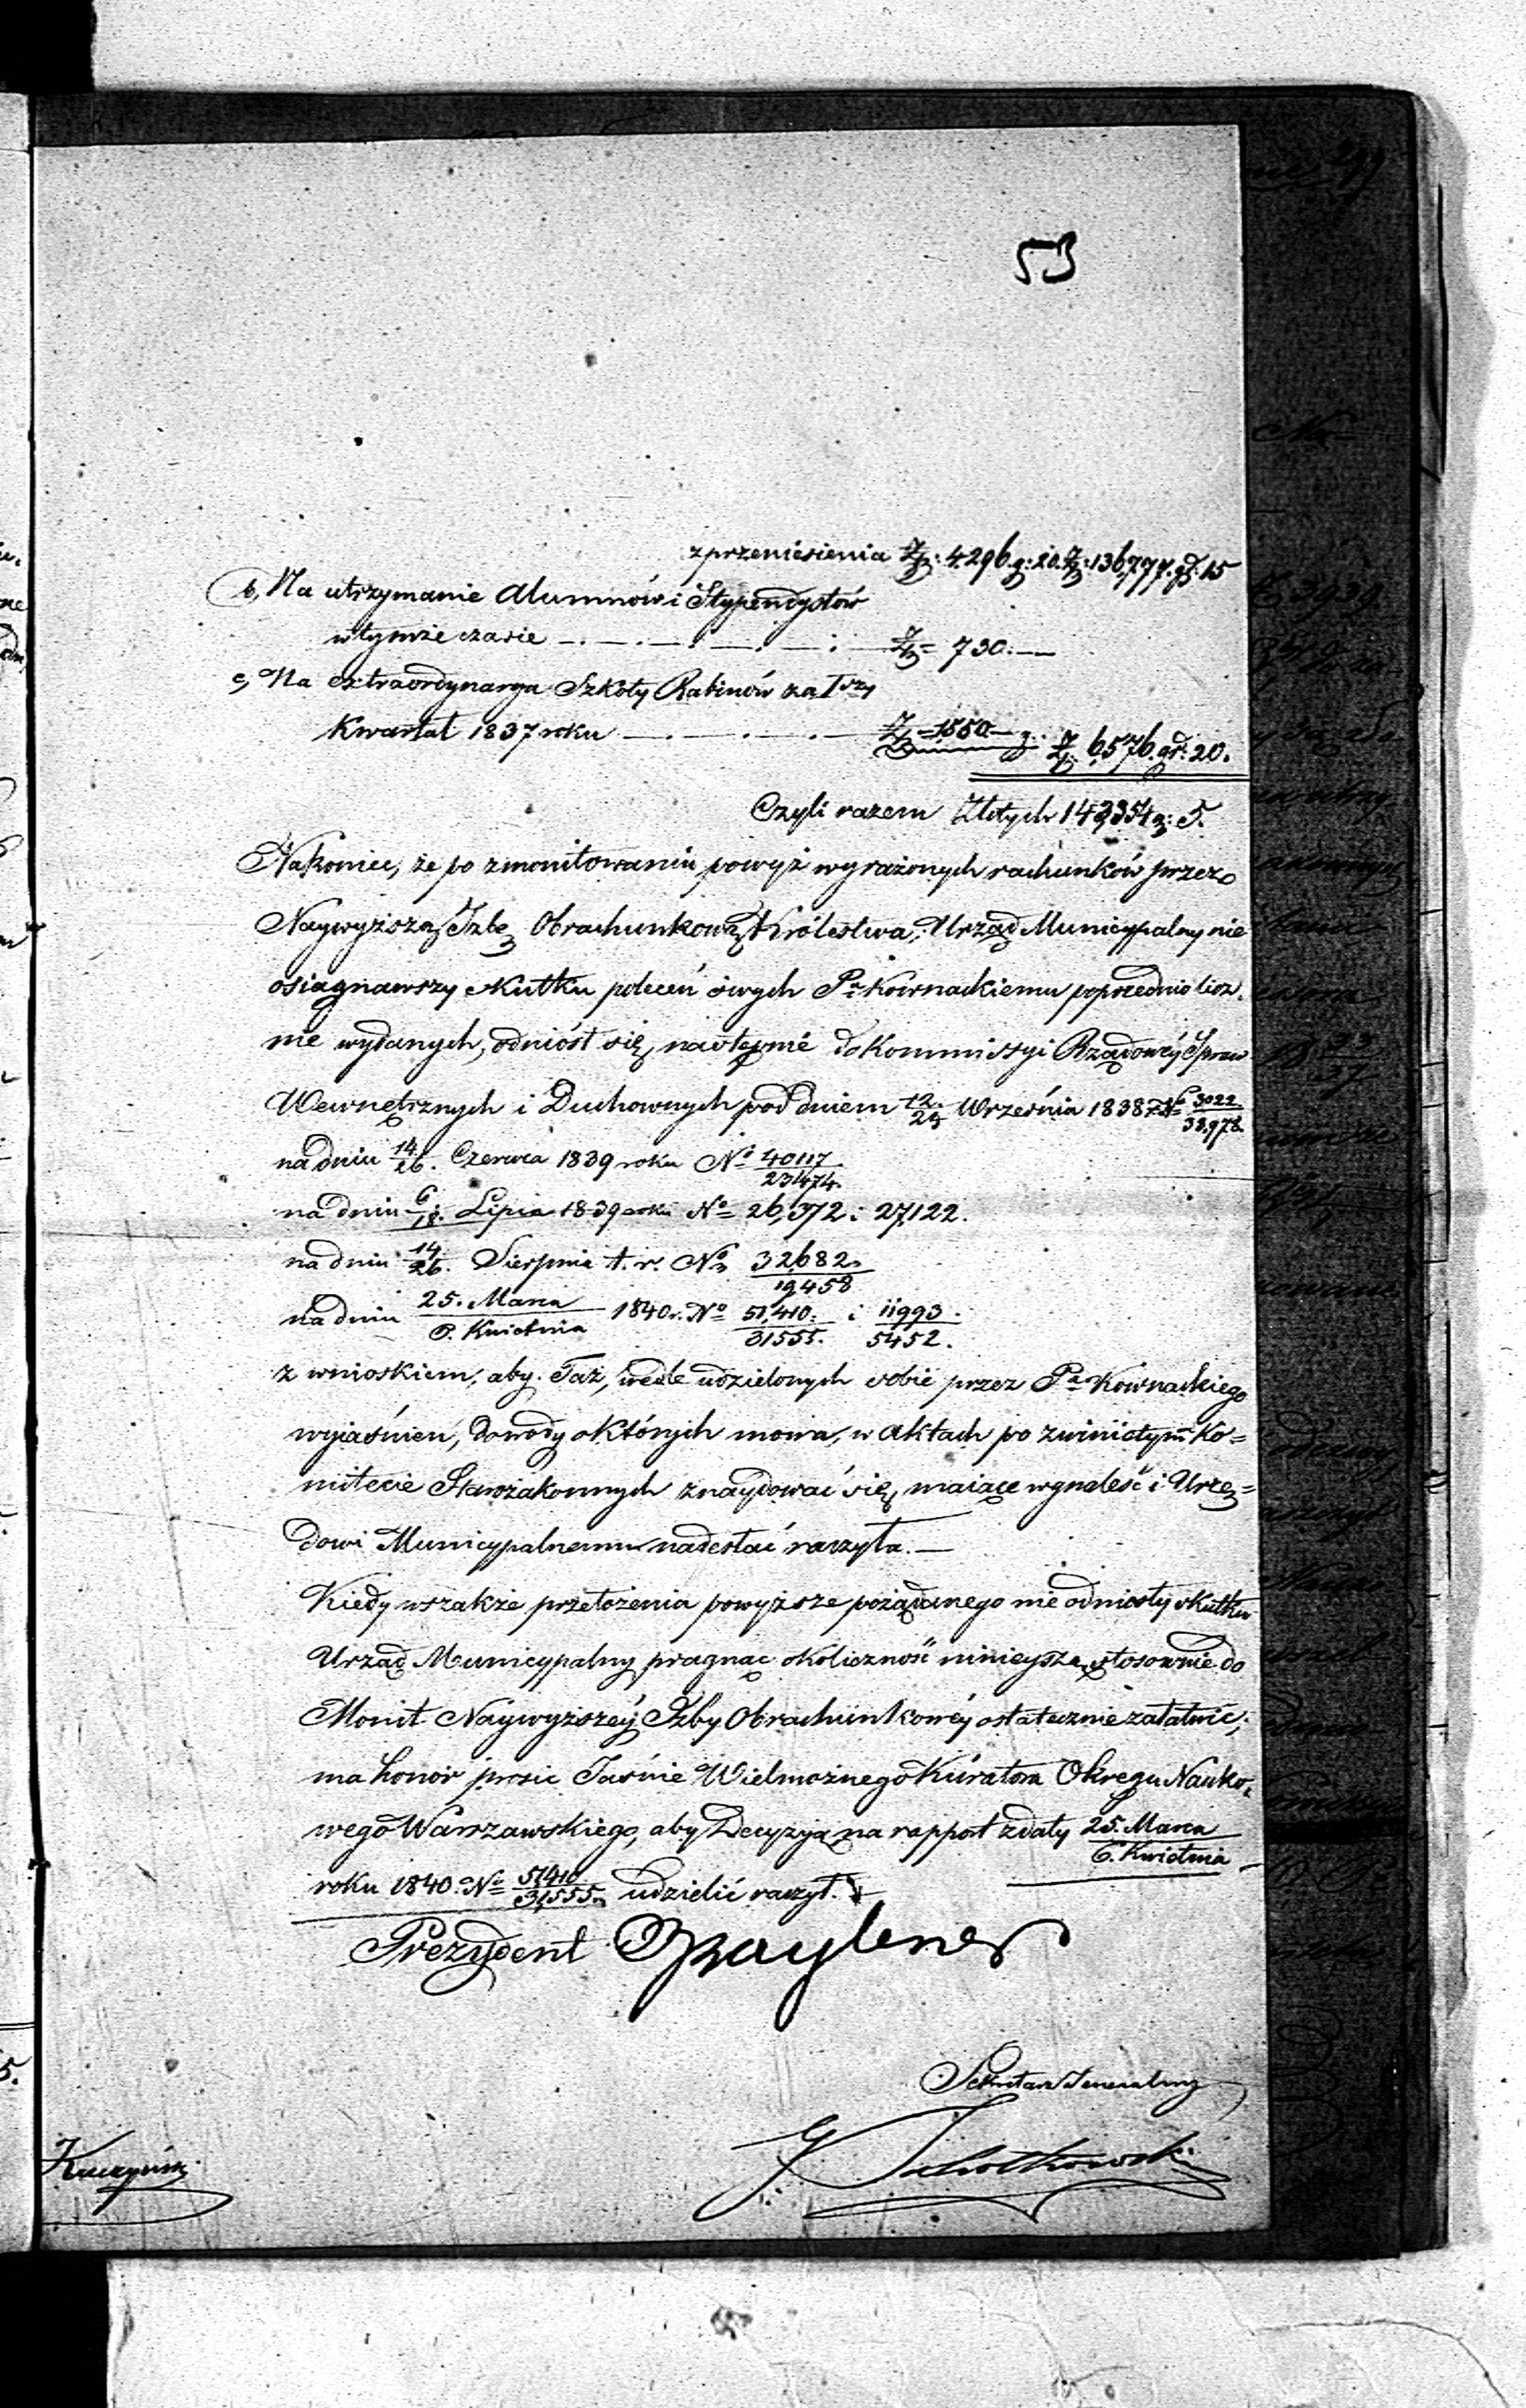 53
z przeniesienia Zł: 4,296. g: 20. Zł: 136,777. gr. 15
b, Na utrzymanie Alumnów i Stypendystów
w tymże czasie — . — . — . — : — Zł = 730. —
c, Na extraordynarya Szkoły Rabinów za Iszy
Kwartał 1837 roku — . — . — . — Zł = 1550 — g: Zł: 6,576. gr: 20.
Czyli razem Złotych 143,354 g: 5.
Nakoniec, że po zmonitowaniu powyż wyrażonych rachunków przez
Naywyższą Izbę Obrachunkową Królestwa, Urząd Municypalny nie
osiągnąwszy skutku poleceń swych Pu Kownackiemu poprzednio licz-
nie wydanych, odniósł się następnie do Kommissyi Rządowéy Spraw
Wewnętrznych i Duchownych pod dniem 12/24 Września 1838 r. No 3022/38,978.
na dniu 14/26. Czerwca 1839 roku No 40117/23474.
na dniu 6/18. Lipca 1839 roku No 26,372 i 27,122.
na dniu 14/26. Sierpnia t. r. No 32,682/19,458
na dniu 25. Marca/6. Kwietnia 1840 r. No 51,410./31555. i 11993./5452.
z wnioskiem, aby Taż, wedle udzielonych sobie przez Pa Kownackiego
wyiaśnień, dowody o których mowa, w Aktach po zwiniętym Ko=
mitecie Starozakonnych znaydować się maiące wynaleść i Urzę=
dowi Municypalnemu nadesłać raczyła. —
Kiedy wszakże przełożenia powyższe pożądanego nie odniosły skutku
Urząd Municypalny pragnąc okoliczność ninieyszą stosownie do
Monit Naywyższéy Izby Obrachunkowéy ostatecznie załatwić,
ma honor prosić Jaśnie Wielmożnego Kuratora Okręgu Nauko-
wego Warszawskiego, aby Decyzyą na rapport z daty 25. Marca/6. Kwietnia
roku 1840. No 51,410/31,555. udzielić raczył.
Prezydent Graybner
Sekretarz Jeneralny
Kuczyński